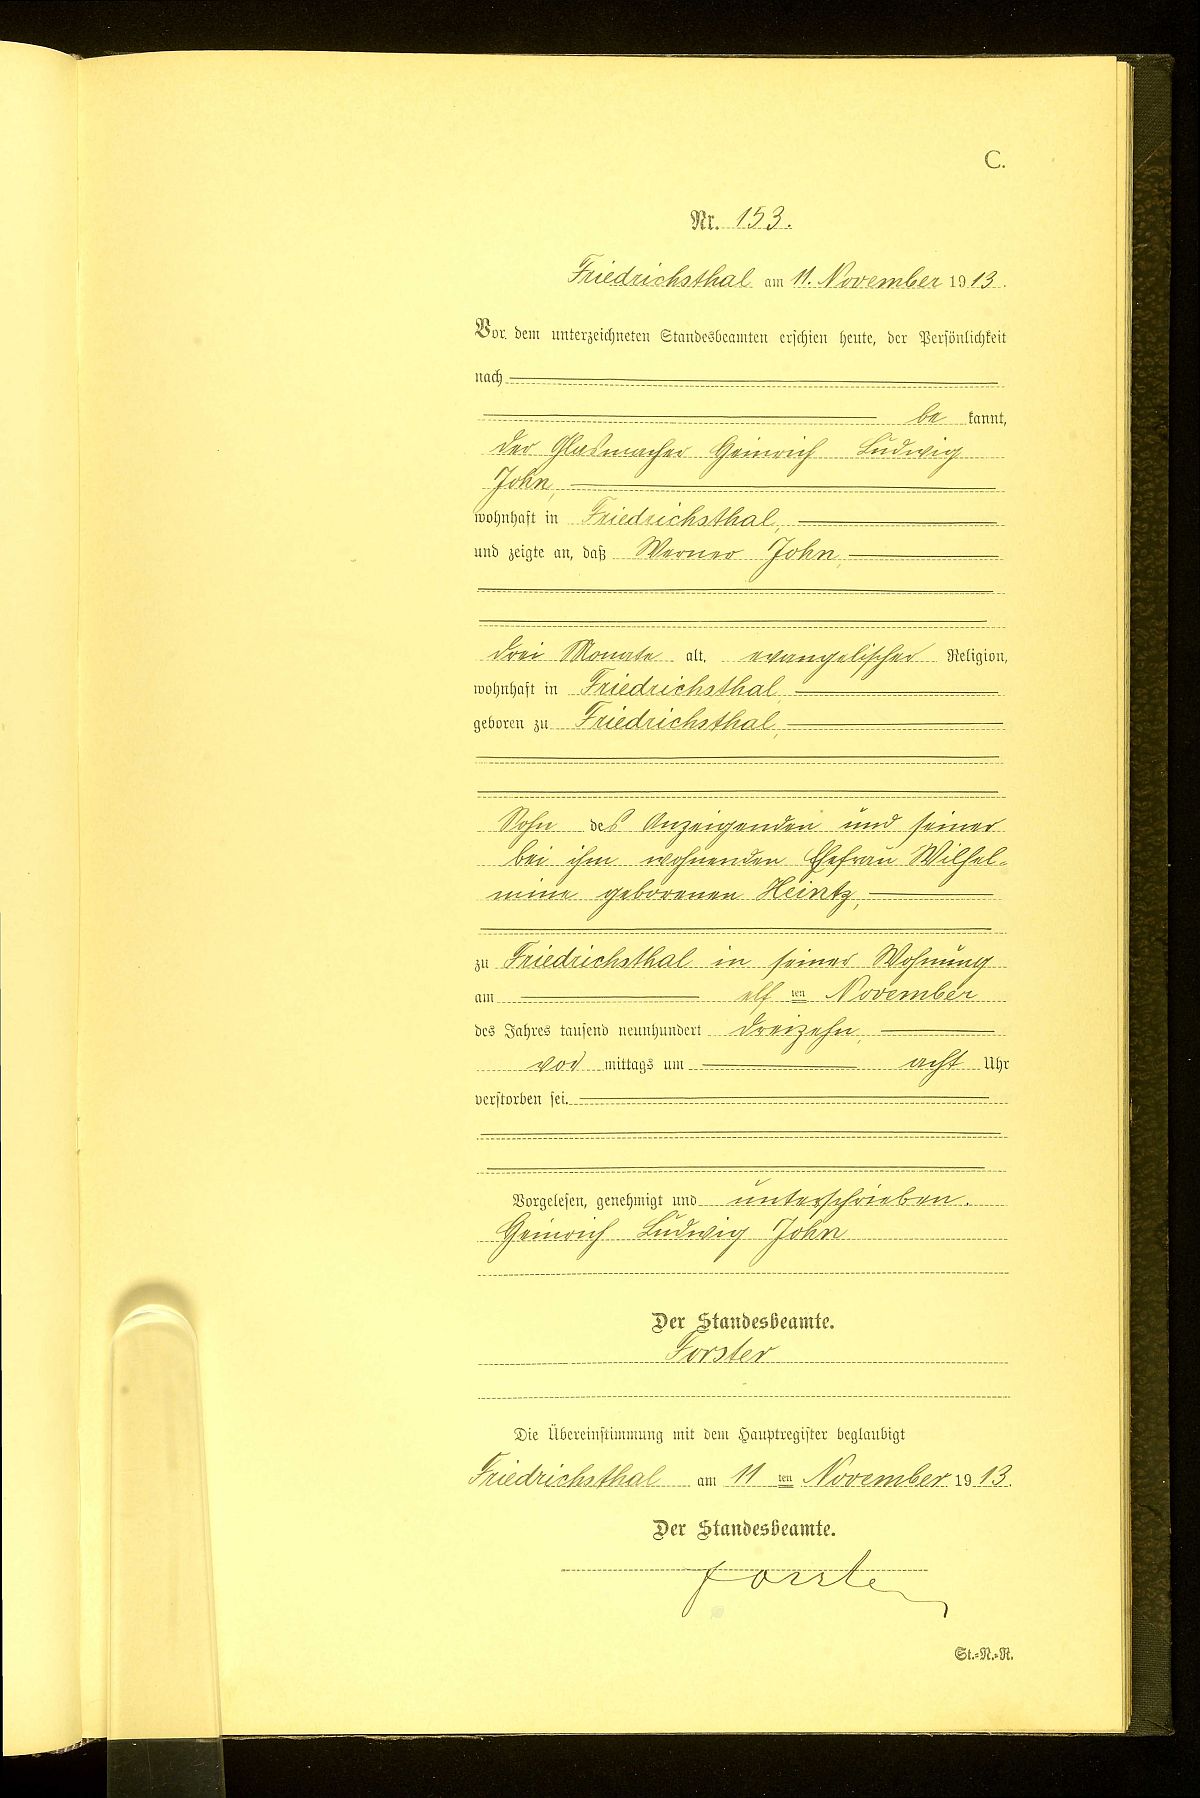 C.
Nr. 153.
Friedrichsthal am 11. November 1913.
Vor dem unterzeichneten Standesbeamten erschien heute, der Persönlichkeit
nach
be kannt,
der Glasmacher Heinrich Ludwig
John,
wohnhaft in Friedrichsthal,
und zeigte an, daß Werner John,
drei Monate alt, evangelischer Religion,
wohnhaft in Friedrichsthal
geboren zu Friedrichsthal,
Sohn des Anzeigenden und seiner
bei ihm wohnenden Ehefrau Wilhel-
mine geborenen Heintz,
zu Friedrichsthal in seiner Wohnung
am elf ten November
des Jahres tausend neunhundert dreizehn,
vor mittags um acht Uhr
verstorben sei.
Vorgelesen, genehmigt und unterschrieben.
Heinrich Ludwig John
Der Standesbeamte.
Forster
Die Übereinstimmung mit dem Hauptregister beglaubigt
Friedrichsthal am 11 ten November 1913.
Der Standesbeamte.
Forster
St.-N.-R.